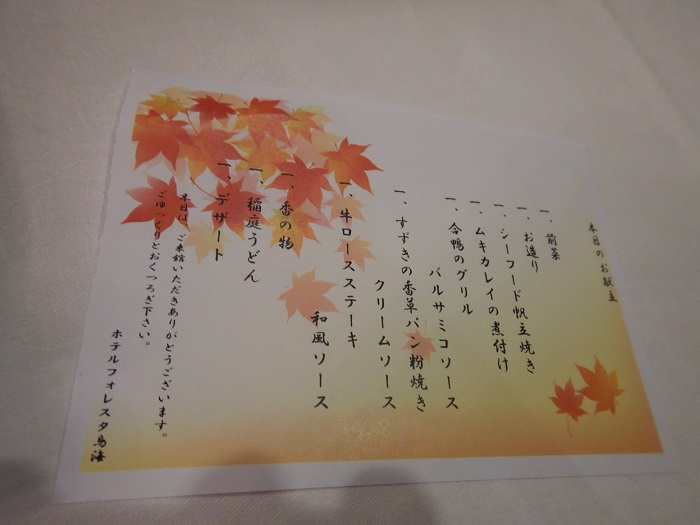 本日のお献立
一、前菜
一、お造り
一、シーフード帆立焼き
一、ムキカレイの煮付け
一、合鴨のグリル
バルサミコソース
一、すずきの香草パン粉焼き
クリームソース
一、牛ロースステーキ
和風ソース
一、香の物
一、稲庭うどん
一、デザート
本日は、ご来館いただきありがとうございます。
ごゆっくりとおくつろぎ下さい。
ホテルフォレスタ鳥海